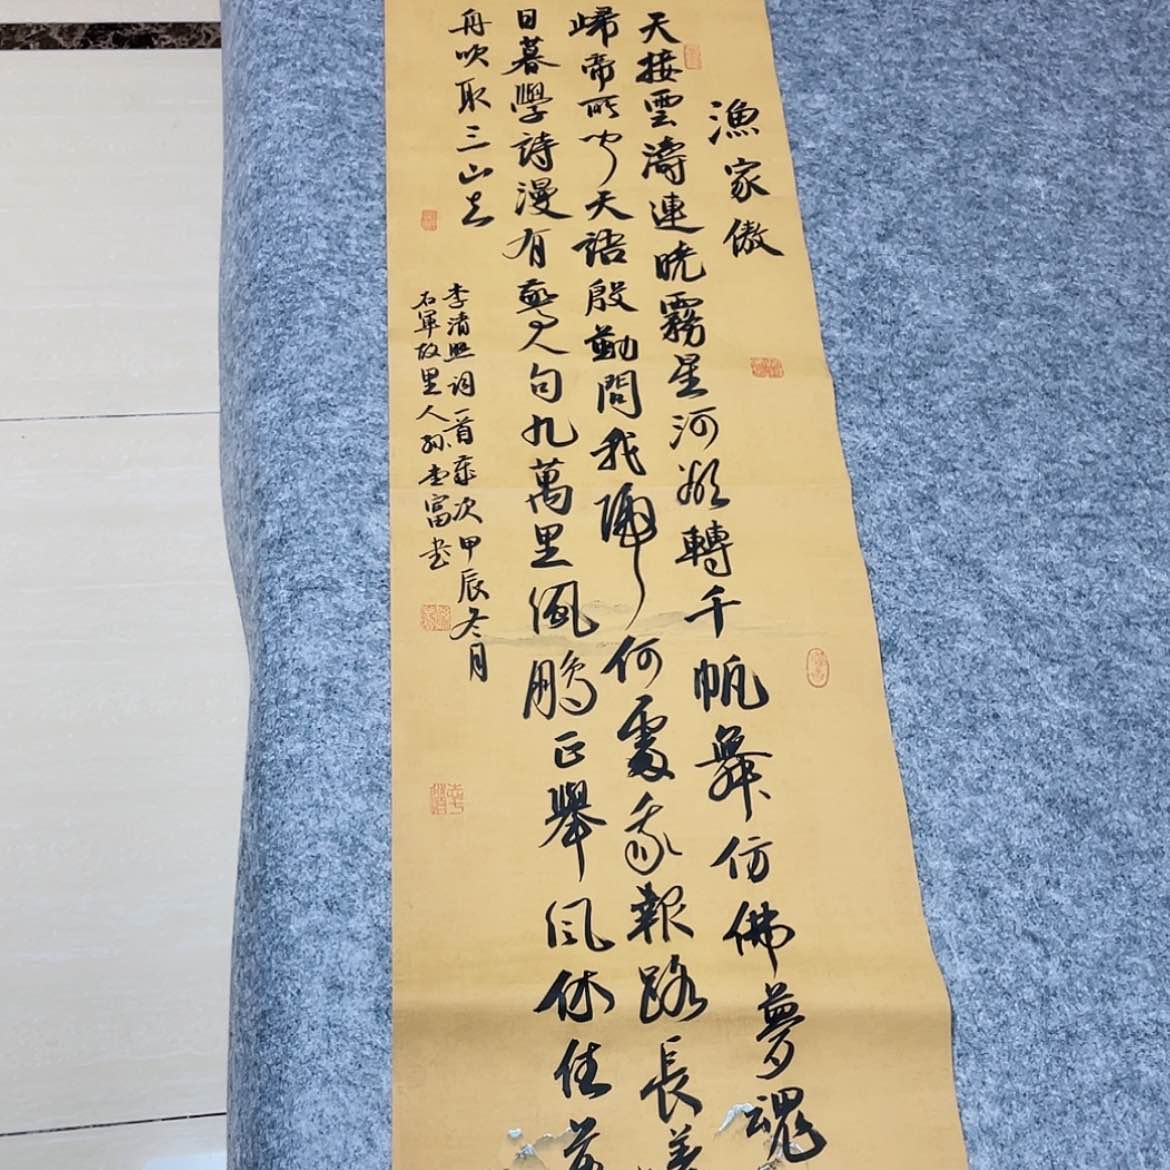 漁家傲
天接雲濤連曉霧星河欲轉千帆舞仿佛夢魂
歸帝所聞天語殷勤問我歸何處我報路長嗟
日暮學詩漫有驚人句九萬里風鵬正舉風休住蓬
舟吹取三山去
李清照詞一首歲次甲辰冬月
右軍故里人孫富書